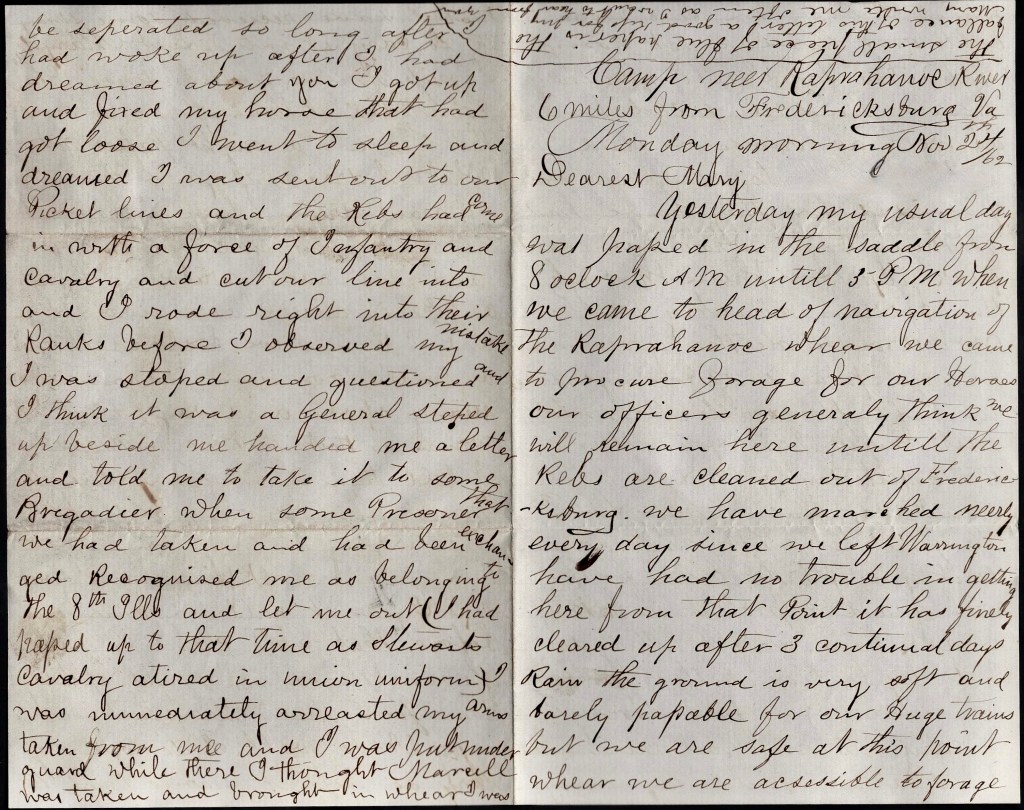 Camp neer Raprahanoc River
6 miles from Fredericksburg Va
Monday morning Nov 24th/62
Dearest Mary
Yesterday my usual day
was passed in the saddle from
8 oclock AM untill 3 PM when
we came to head of navigation of
the Raprahanoc whear we came
to procure forage for our Horses
our officers generaly think we
will remain here untill the
Rebs are cleaned out of Frederic-
-ksburg. we have marched neerly
every day since we left Warrington
have had no trouble in getting
here from that Point it has finely
cleared up after 3 continual days
Rain the ground is very soft and
barely passable for our Huge trains
but we are safe at this point
whear we are acsessible to forage
be seperated so long after I
had woke up after I had
dreamed about you I got up
and fixed my horse that had
got loose I went to sleep and
dreamed I was sent out to our
Picket lines and the Rebs had come
in with a force of Infantry and
Cavalry and cut our line into
and I rode right into their
Ranks before I observed my mistake
I was stoped and questioned and
I think it was a General steped
up beside me handed me a letter
and told me to take it to some
Brigadier when some Presoner that
we had taken and had been exchan-
ged Recognised me as belonging to
the 8th Ills and let me out (I had
passed up to that time as Stewarts
Cavalry atired in union uniform) I
was immediately arreasted my arms
taken from mee and I was put under
guard while there I thought Marcell
was taken and brought in whear I was
The small piece of blue paper is the
ballance of this letter a good
Mary write me often as I